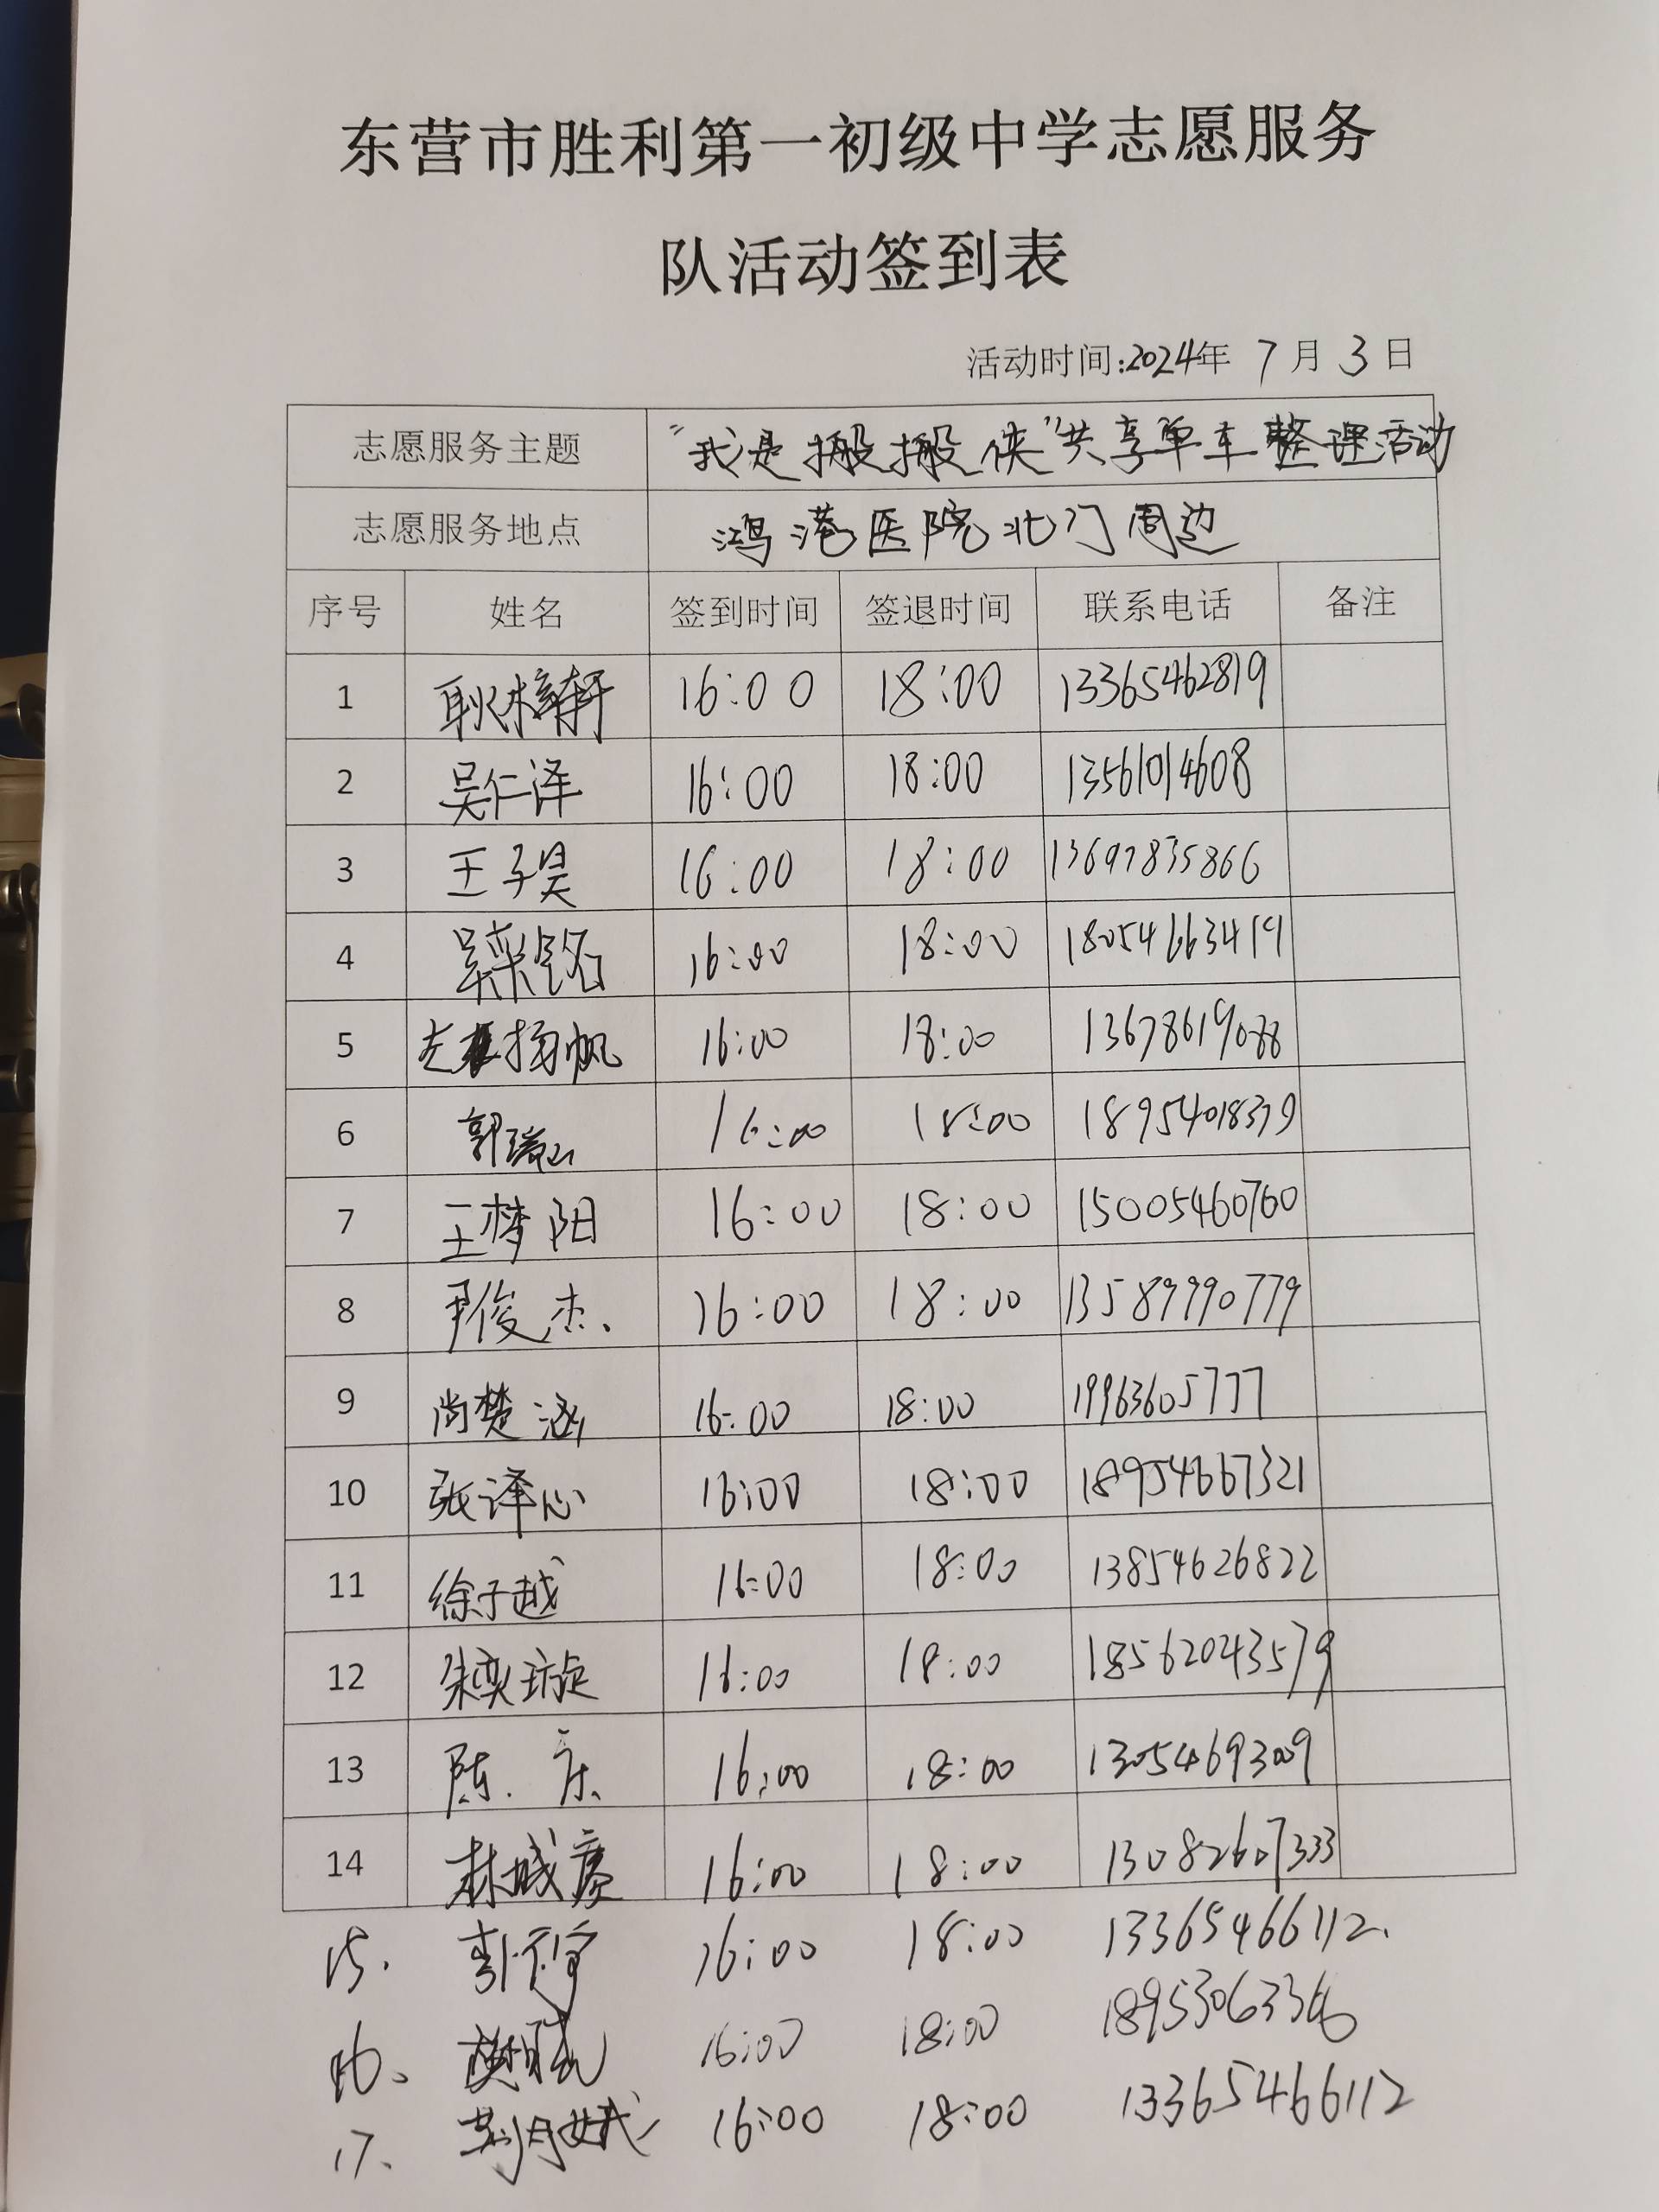 东营市胜利第一初级中学志愿服务
队活动签到表
活动时间:2024年 7 月 3 日
志愿服务主题 "我是搬搬侠"共享单车整理活动
志愿服务地点 鸿港医院北门周边
序号 姓名 签到时间 签退时间 联系电话 备注
1 耿梓轩 16:00 18:00 13365462819
2 吴仁泽 16:00 18:00 13561014608
3 王子昊 16:00 18:00 13697835866
4 吴栾铭 16:00 18:00 18054663419
5 左扬帆 16:00 18:00 13678619088
6 郭瑞 16:00 18:00 18954018379
7 王梦阳 16:00 18:00 15005460760
8 尹俊杰. 16:00 18:00 13589990779
9 尚楚涵 16:00 18:00 19963605777
10 张译心 16:00 18:00 18954667321
11 徐子越 16:00 18:00 13854626822
12 朱奕璇 16:00 18:00 18562043579
13 陈 16:00 18:00 13054693009
14 林城赓 16:00 18:00 13082607333
15. 16:00 18:00 13365466112.
16、 16:00 18:00
17、 荆月娥 16:00 18:00 13365466112